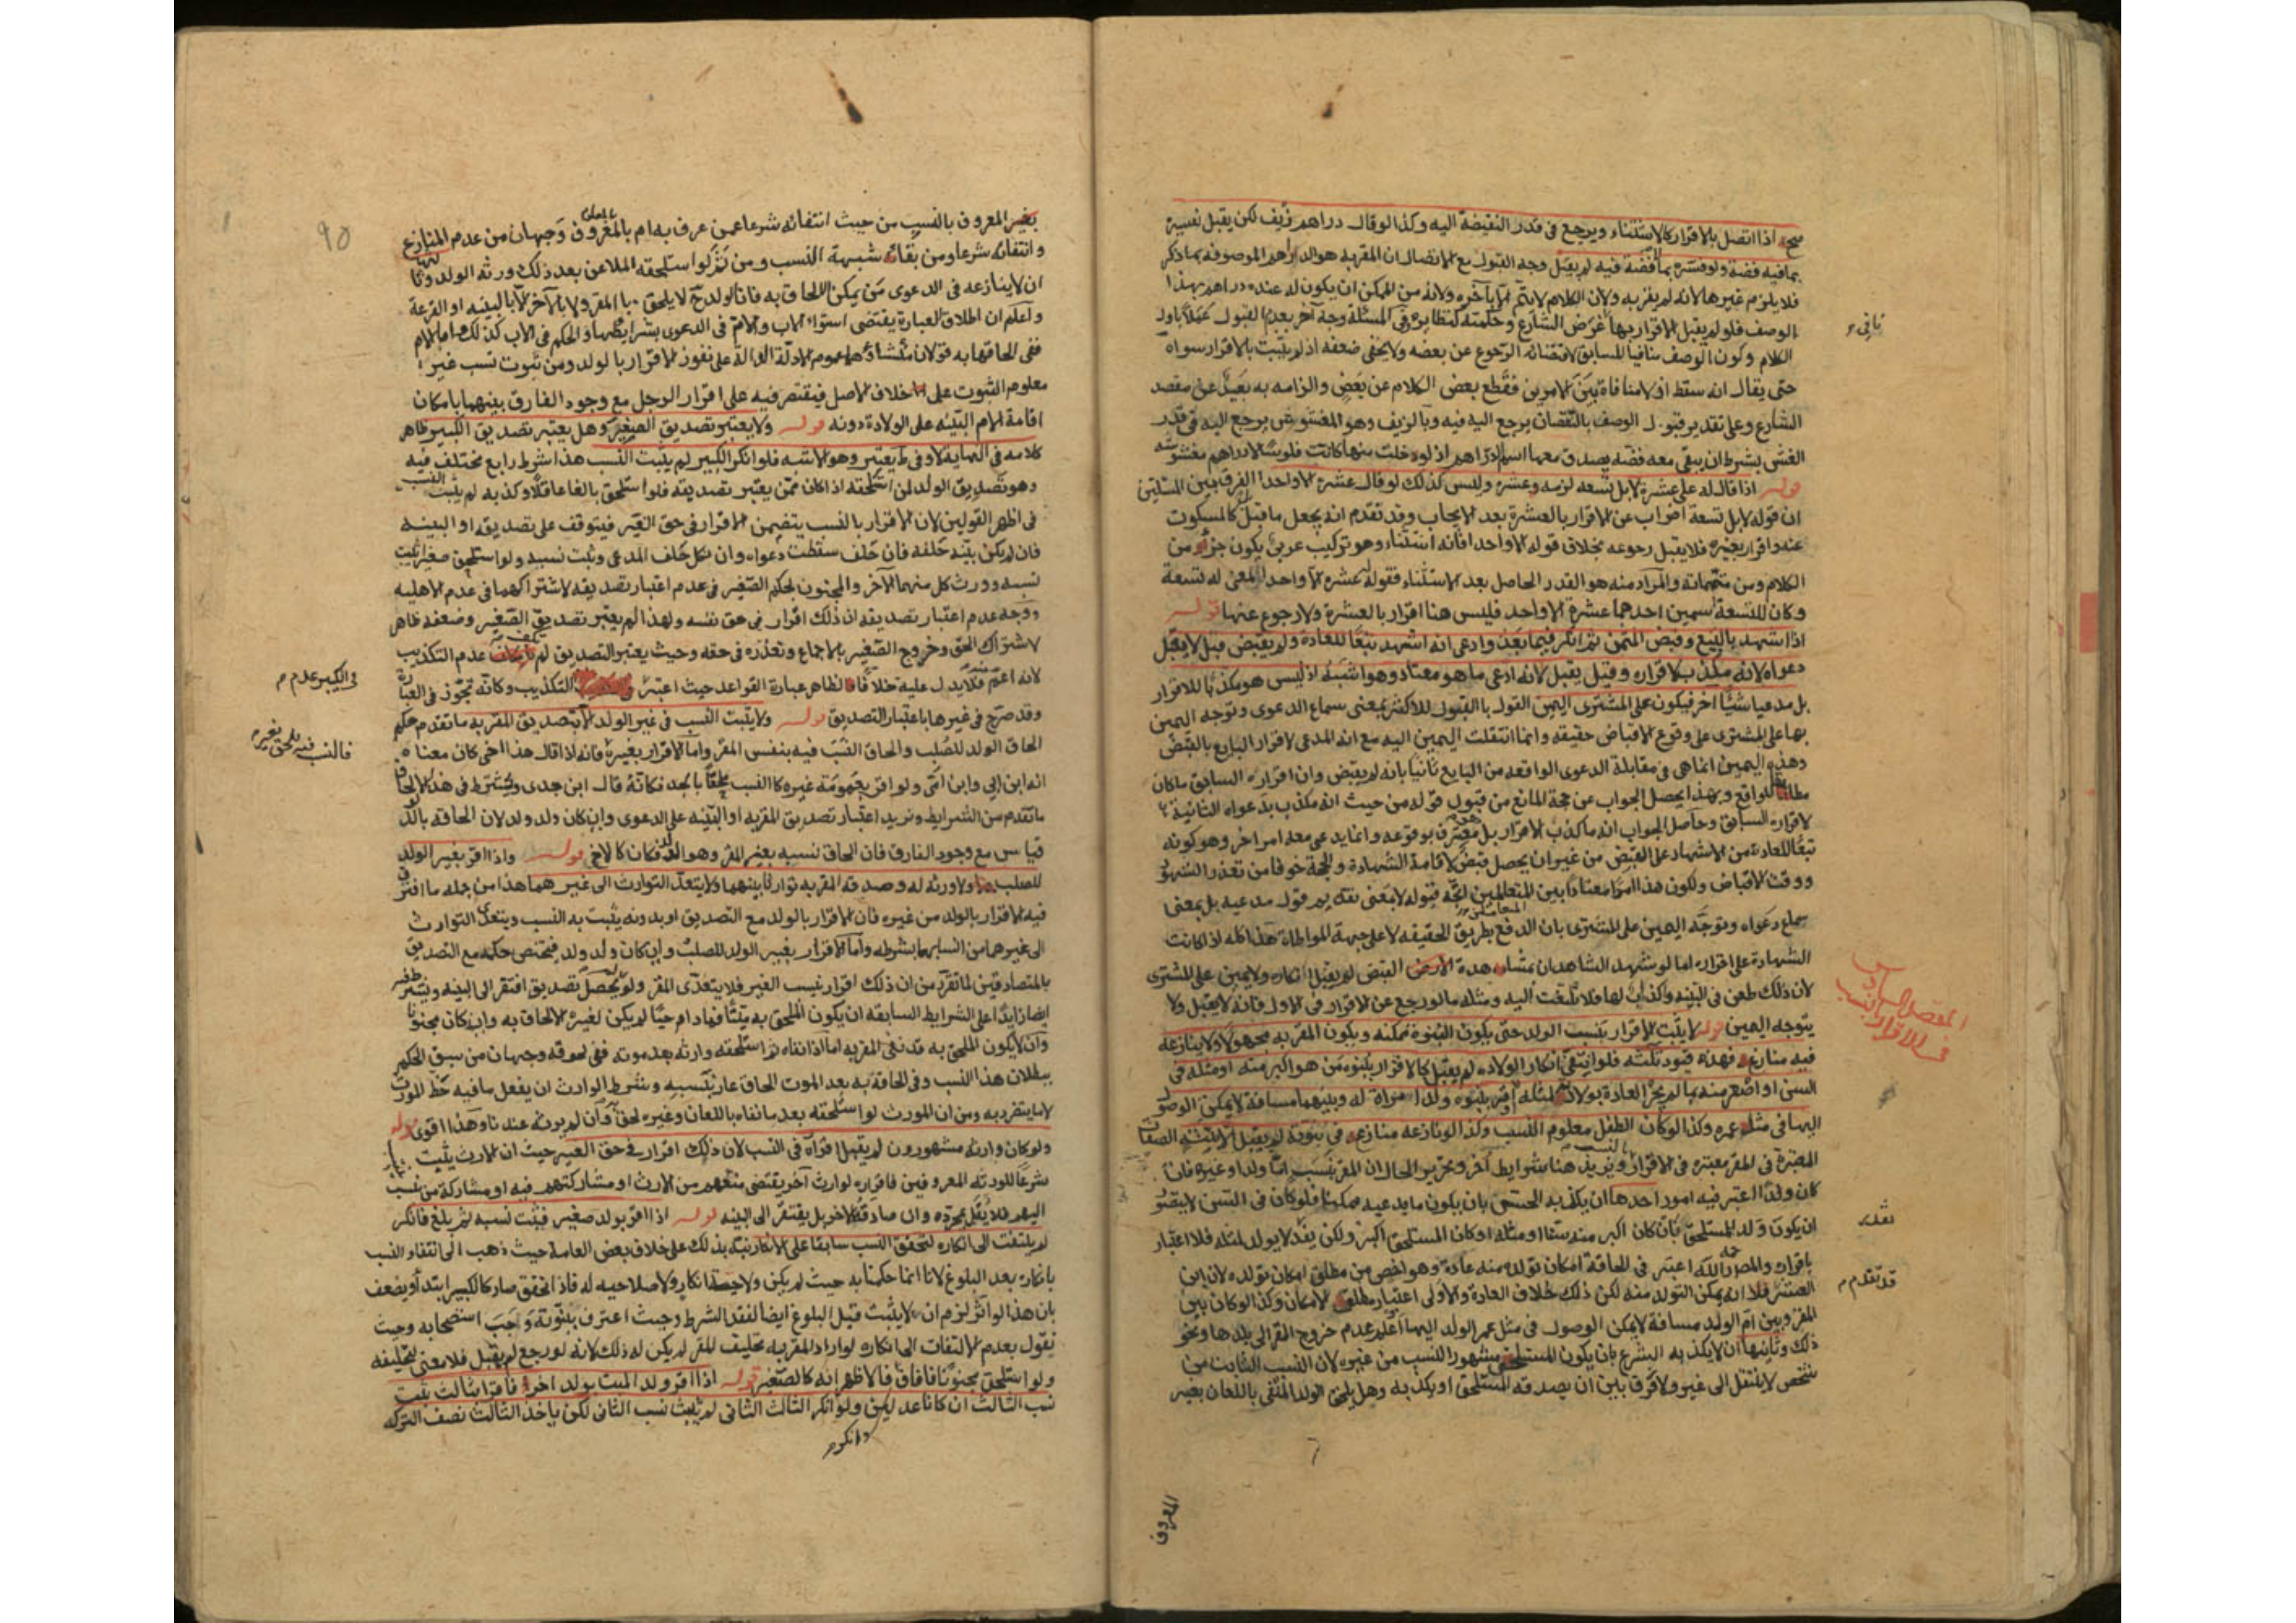 صح اذا اتصل بالاقرار كالاستثناء ويرجع في قدر النقيصة اليه وكذا لو قال دراهم زيف لكن يقبل تفسيره
بما فيه فضة ولو فسره بما لا فضة فيه لم يقبل وجه القبول مع الاتصال ان المقر به هو الدراهم الموصوفة بما ذكر
فلا يلزم غيرها لانه لم يقر به ولان الكلام لا يتم الا بآخره ولانه من الممكن ان يكون له عنده دراهم بهذا
الوصف فلو لم يقبل الاقرار بها غرض الشارع وحكمته كنظايره وفي المسئلة وجه آخر بعدم القبول عملا باول
الكلام وكون الوصف منافيا للسابق لاقتضائه الرجوع عن بعضه ولا يخفى ضعفه اذ لم يثبت بالاقرار سواه
حتى يقال انه سقط اذ لا منافاة بين الامرين فقطع بعض الكلام عن بعض والزامه به بعيد عن مقصد
الشارع وعلى تقدير قبول الوصف بالنقصان يرجع اليه فيه وبالزيف وهو المغشوش يرجع اليه في قدر
الغش بشرط ان يبقى معه فضة يصدق معها اسم الدراهم اذ لو خلت منها كانت فلوسا لا دراهم مغشوشة
قوله اذا قال له على عشرة لا بل تسعه لزمه عشره وليس كذلك لو قال عشرة الا واحدا الفرق بين المسئلتين
ان قوله لا بل تسعة اضراب عن الاقرار بالعشرة بعد الايجاب وقد تقدم انه يجعل ما قبل كالمسكوت
عنه واقرار بغيره فلا يقبل رجوعه بخلاف قوله الا واحدا فانه استثناء وهو تركيب عربي يكون جزأ من
الكلام ومن متمماته والمراد منه هو القدر الحاصل بعد الاستثناء فقوله عشره الا واحدا المعنى له تسعة
وكان للتسعة اسمين احدهما عشرة الا واحد فليس هنا اقرار بالعشرة ولا رجوع عنها قوله
اذا اشهد بالبيع وقبض الثمن ثم انكر فيما بعد وادعى انه اشهد تبعا للعادة ولم يقبض قيل لا يقبل
دعواه لانه مكذب لاقراره وقيل يقبل لانه ادعى ما هو معتاد وهو اشبه اذ ليس هو مكذبا للاقرار
بل مدعيا شيئا اخر فيكون على المشتري اليمين القول بالقبول للاكثر بمعنى سماع الدعوى وتوجه اليمين
بها على المشتري على وقوع الاقباض حقيقه وانما انتقلت اليمين اليه مع انه المدعى لاقرار البايع بالقبض
وهذه اليمين انما هي في مقابلة الدعوى الواقعه من البايع ثانيا بانه لم يقبض وان اقراره السابق ما كان
مطابقا للواقع وبهذا يحصل الجواب عن حجة المانع من قبول قوله من حيث انه مكذب بدعواه الثانية
لاقراره السابق وحاصل الجواب انه ما كذب الاقرار بل معترف بوقوعه وانما يدعى معه امرا اخر وهو كونه
تبعا للعادة من الاشهاد على القبض من غير ان يحصل قبض لاقامة الشهادة والحجة خوفا من تعذر الشهود
ووقت الاقباض ولكون هذا امرا معتادا بين المتعاملين اتجه قبوله لا بمعنى تقديم قول مدعيه بل بمعنى
المتعاملين
سماع دعواه وتوجه اليمين على المشتري بان الدفع بطريق الحقيقه لا على جهة المواطاة هذا كله اذا كانت
الشهادة على اقراره اما لو شهد الشاهدان بمشاهدة القبض لم يقبل انكاره ولا يمين على المشتري
لان ذلك طعن في البينه واكذاب لها فلا يلتفت اليه ومثله ما لو رجع عن الاقرار في الاول فانه لا يقبل ولا
يتوجه اليمين قوله لا يثبت الاقرار بنسب الولد حتى يكون البنوة ممكنه ويكون المقر به مجهولا ولا ينازعه
فيه منازع فهذه قيود ثلثه فلو انتفى امكان الولاده لم يقبل كالاقرار ببنوه من هو اكبر منه او مثله في
السن او اصغر منه بما لم يجر العادة بولادته لمثله او اقر ببنوه ولد امراة له وبينهما مسافة لا يمكن الوصول
اليها في مثل عمره وكذا لو كان الطفل معلوم النسب وكذا لو نازعه منازع في بنوته لم يقبل الا ببينه الصفات
المعتبرة في المقر معتبره في الاقرار بالنسب ويزيد هنا شرايط آخر وتحرير الحال ان المقر بنسب اما ولدا وغيره فان
كان ولدا اعتبر فيه امور احدها ان يكذبه الحس بان يكون ما يدعيه ممكنا فلو كان في السن لا يتصور
ان يكون ولد المستلحق بان كان اكبر منه سنا او مثله او كان المستلحق اكبر ولكن بقدر لا يولد لمثله فلا اعتبار
باقراره والمص رحمه الله اعتبر في الحاقه امكان تولده منه عادة وهو اخص من مطلق امكان تولده لان ابن
العشر فلا انه يمكن التولد منه لكن ذلك خلاف العادة والاولى اعتبار مطلق الامكان وكذا لو كان بين
المقر وبين ام الولد مسافة لا يمكن الوصول في مثل عمر الولد اليها او علم عدم خروج المقر الى بلدها ونحو
ذلك وثانيها ان لا يكذبه الشرع بان يكون المستلحق مشهور النسب من غيره لان النسب الثابت من
شخص لا ينتقل الى غيره ولا فرق بين ان يصدقه المستلحق او يكذبه وهل يلحق الولد المنفي باللعان بغير
المعروف
المقصد السادس
في الاقرار بالنسب
تقدير
قد تقدم م
٩٥
بغير المعروف بالنسب من حيث انتفائه شرعا عمن عرف به ام بالمعروف وجهان من عدم المنازع
وانتفائه شرعا ومن بقاء شبهة النسب ومن ثم لو استلحقه الملاعن بعد ذلك ورثه الولد وثالثها
ان لا ينازعه في الدعوى من يمكن الالحاق به فان الولد ح لا يلحق بالمقر ولا بالآخر الا بالبينه او القرعة
واعلم ان اطلاق العبارة يقتضى استواء الاب والام في الدعوى بشرايطها والحكم في الاب كذلك واما الام
ففي الحاقها به قولان منشاؤهما عموم الادلة الدالة على نفوذ الاقرار بالولد ومن ثبوت نسب غير
معلوم الثبوت على خلاف الاصل فيقتصر فيه على اقرار الرجل مع وجود الفارق بينهما بامكان
اقامة الام البينه على الولادة دونه قوله ولا يعتبر تصديق الصغير وهل يعتبر تصديق الكبير ظاهر
كلامه في النهاية لا وفي ط يعتبر وهو الاشبه فلو انكر الكبير لم يثبت النسب هذا شرط رابع مختلف فيه
وهو تصديق الولد لمن استلحقه اذا كان ممن يعتبر تصديقه فلو استلحق بالغا عاقلا وكذبه لم يثبت النسب
في اظهر القولين لان الاقرار بالنسب يتضمن الاقرار في حق الغير فيتوقف على تصديقه او البينه
فان لم يكن بينه حلفه فان حلف سقطت دعواه وان نكل حلف المدعى وثبت نسبه ولو استلحق صغيرا ثبت
نسبه وورث كل منهما الآخر والمجنون بحكم الصغير في عدم اعتبار تصديقه لاشتراكهما في عدم الاهليه
ووجه عدم اعتبار تصديقه ان ذلك اقرار في حق نفسه ولهذا لم يعتبر تصديق الصغير وضعفه ظاهر
لاشتراك الحق وخروج الصغير بالاجماع وتعذره في حقه وحيث يعتبر التصديق لم يكف عدم التكذيب
لانه اعم فلا يدل عليه خلافا لظاهر عبارة القواعد حيث اعتبر التكذيب وكانه تجوز في العبارة
وقد صرح في غيرها باعتبار التصديق قوله ولا يثبت النسب في غير الولد الا بتصديق المقر به ما تقدم حكم
الحاق الولد للصلب والحاق النسب فيه بنفس المقر واما الاقرار بغيره فانه اذا قال هذا اخي كان معناه
انه ابن ابي وابن امي ولو اقر بعمومة غيره كا النسب ملحقا بالجد فكانه قال ابن جدي ويشترط في هذا الالحاق
ما تقدم من الشرايط ويزيد اعتبار تصديق المقر به او البينه على الدعوى وان كان ولد ولد لان الحاقه بالولد
قياس مع وجود الفارق فان الحاق نسبه بغير المقر وهو الولد فكان كالاخ قوله واذا اقر بغير الولد
للصلب ولا ورثه له وصدقه المقر به توارثا بينهما ولا يتعد التوارث الى غيرهما هذا من جمله ما افترق
فيه الاقرار بالولد من غيره فان الاقرار بالولد مع التصديق او بدونه يثبت به النسب ويتعدى التوارث
الى غيرهما من انسابهما بشرطه واما الاقرار بغير الولد للصلب وان كان ولد ولد فيختص حكمه مع التصديق
بالمتصادقين لما تقرر من ان ذلك اقرار بنسب الغير فلا يتعدى المقر ولو لم يحصل تصديق افتقر الى البينه ويشترط فيه
ايضا زايدا على الشرايط السابقه ان يكون الملحق به ميتا فمادام حيا لم يكن لغيره الالحاق به وان كان مجنونا
وان لا يكون الملحق به قد نفى المقر به اما اذا نفاه ثم استلحقه وارثه بعد موته ففي لحوقه وجهان من سبق الحكم
ببطلان هذا النسب وفي الحاقه به بعد الموت الحاق عار بنسبه وشرط الوارث ان يفعل ما فيه حظ المورث
لا ما يتضرر به ومن ان المورث لو استلحقه بعد ما نفاه باللعان وغيره لحق به وان لم يرثه عندنا وهذا اقوى قوله
ولو كان وارثه مشهورون لم يقبل اقراره في النسب لان ذلك اقرار في حق الغير حيث ان الارث يثبت
شرعا للورثه المعروفين فاقراره لوارث آخر يقتضى منعهم من الارث او مشاركتهم فيه او مشاركة من ينسب
اليهم فلا يقبل بمجرده وان صادقه الاخر بل يفتقر الى البينه قوله اذا اقر بولد صغير فثبت نسبه ثم بلغ فانكر
لم يلتفت الى انكاره لتحقق النسب سابقا على الانكار نبه بذلك على خلاف بعض العامه حيث ذهب الى انتفاء النسب
بانكاره بعد البلوغ لانا انما حكمنا به حيث لم يكن ولاحصه انكار ولا صلاحيه له فاذا تحقق صار كالكبير ابتداء ويضعف
بان هذا لو اثر لزم ان لا يثبت قبل البلوغ ايضا لفقد الشرط وحيث اعترف ببنوته وجب استصحابه وحيث
نقول بعدم الالتفات الى انكاره لو اراد المقر به تحليف المقر لم يكن له ذلك لانه لو رجع لم يقبل فلا معنى لتحليفه
ولو استلحق مجنونا فافاق فالاظهر انه كالصغير قوله اذا اقر ولد الميت بولد اخر فاقرا بثالث يثبت
نسب الثالث ان كانا عدلين ولو انكر الثالث الثاني لم يثبت نسب الثاني لكن ياخذ الثالث نصف التركه
في الكبير عدم م
فالنسب فيه يلحق بغيره